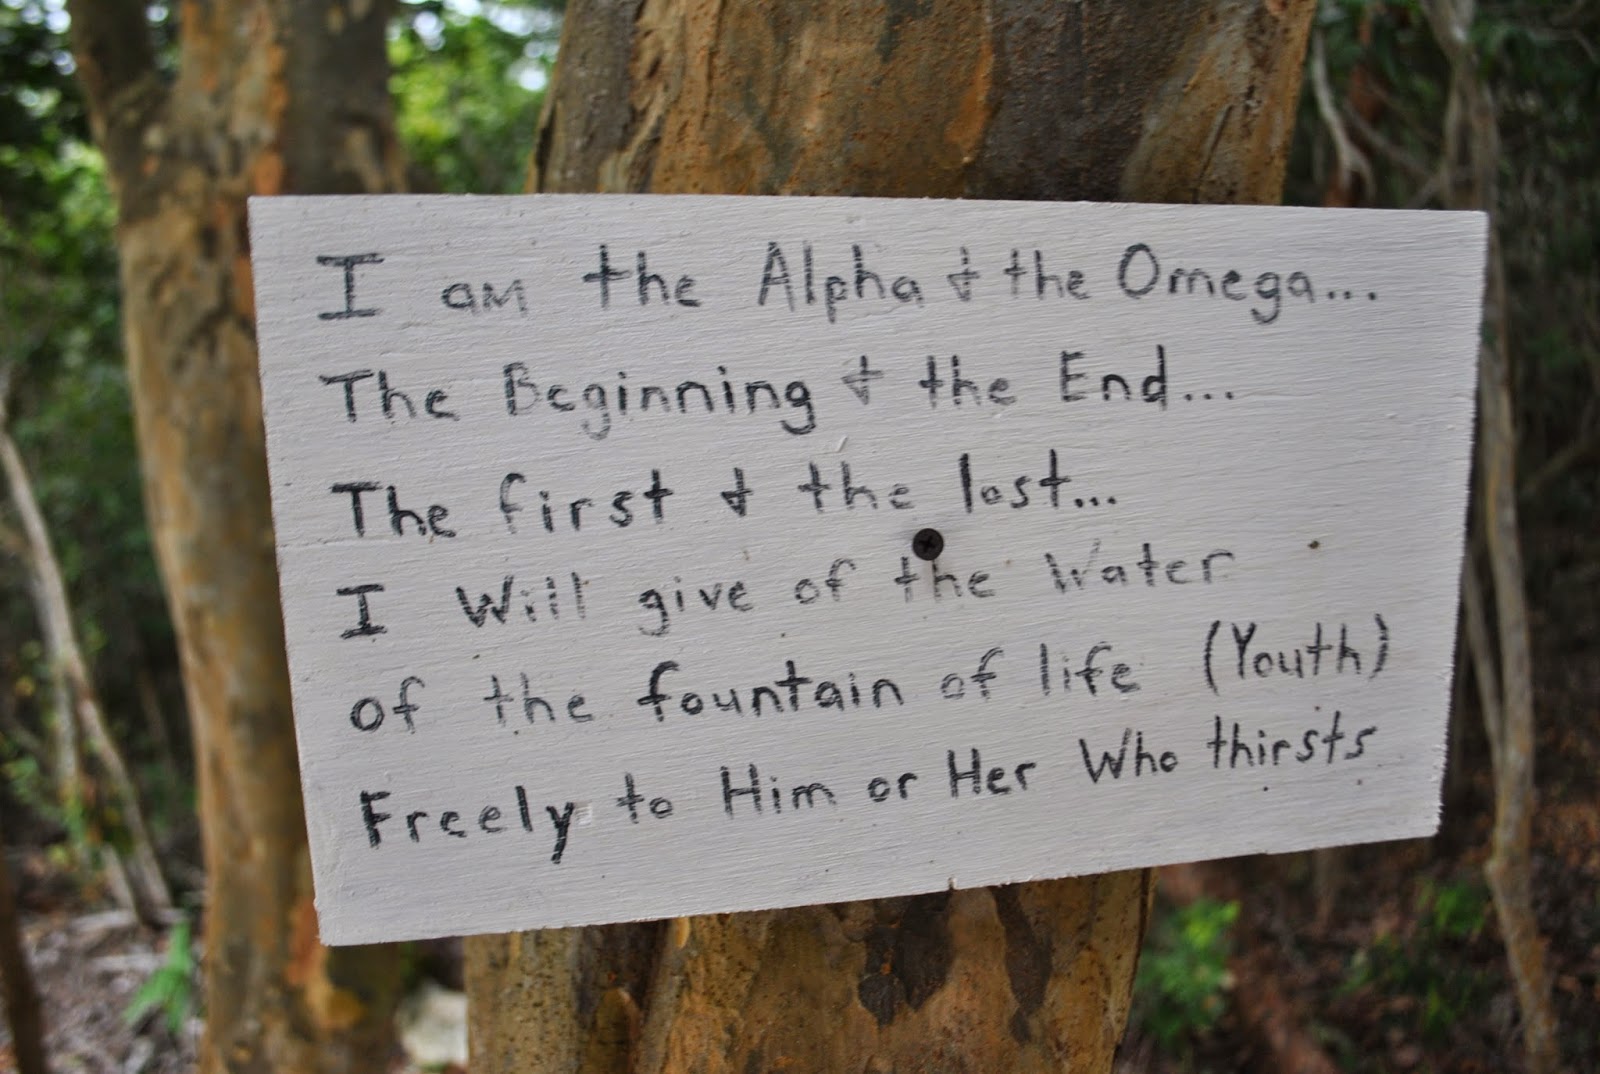 I am the Alpha & the Omega...
The Beginning & the End...
The first & the last...
I Will give of the Water
of the fountain of life (Youth)
Freely to Him or Her Who thirsts